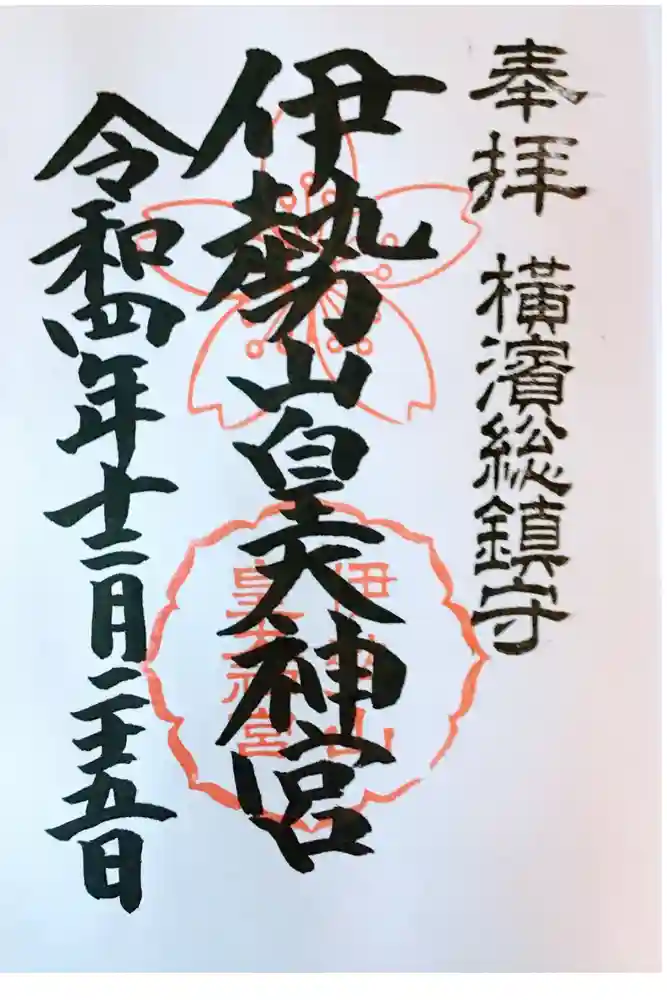 奉拝 横濱総鎮守
伊勢山皇大神宮
伊勢山
皇大神宮
令和四年十二月二十五日